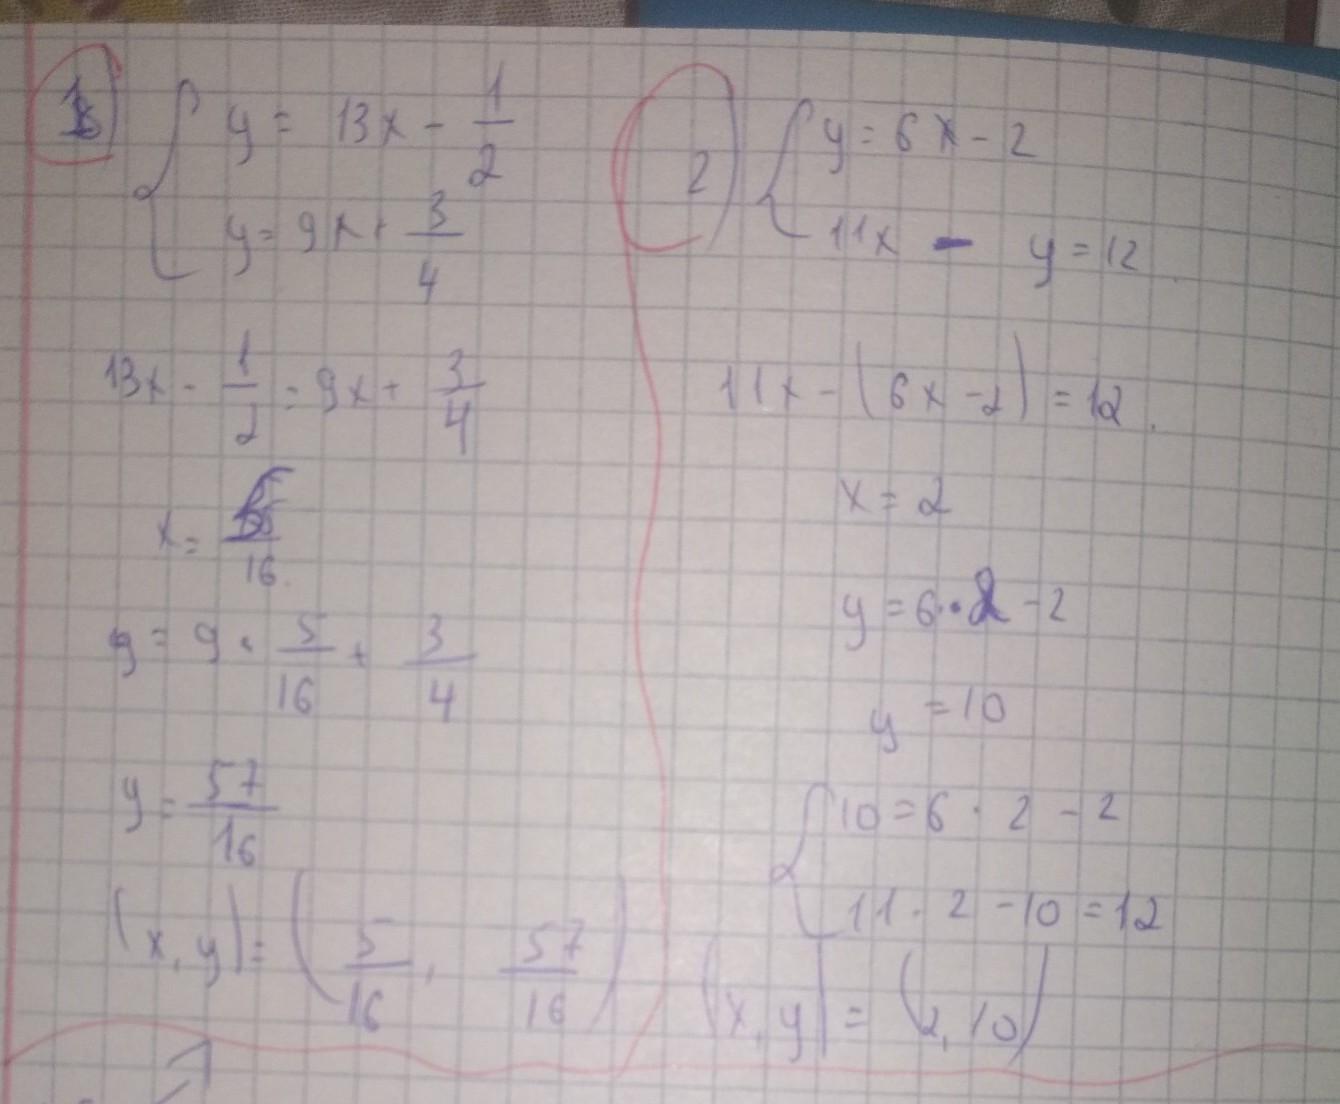 y = 13x - 1/2
y = 9x + 3/4
13x - 1/2 = 9x + 3/4
x = 5/16
y = 9 · 5/16 + 3/4
y = 57/16
(x, y) = (5/16, 57/16)
2
y = 6x - 2
11x - y = 12
11x - (6x - 2) = 12
x = 2
y = 6 · 2 - 2
y = 10
10 = 6 · 2 - 2
11 · 2 - 10 = 12
(x, y) = (2, 10)